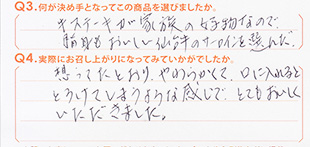 Q3.何が決め手となってこの商品を選びましたか。
ステーキが家族の好物なので、
脂身もおいしい仙台牛のサーロインを選んだ。
Q4.実際にお召し上がりになってみていかがでしたか。
想ってたとおり、やわらかくて、口に入れると
とろけてしまうような感じで、とてもおいしく
いただきました。